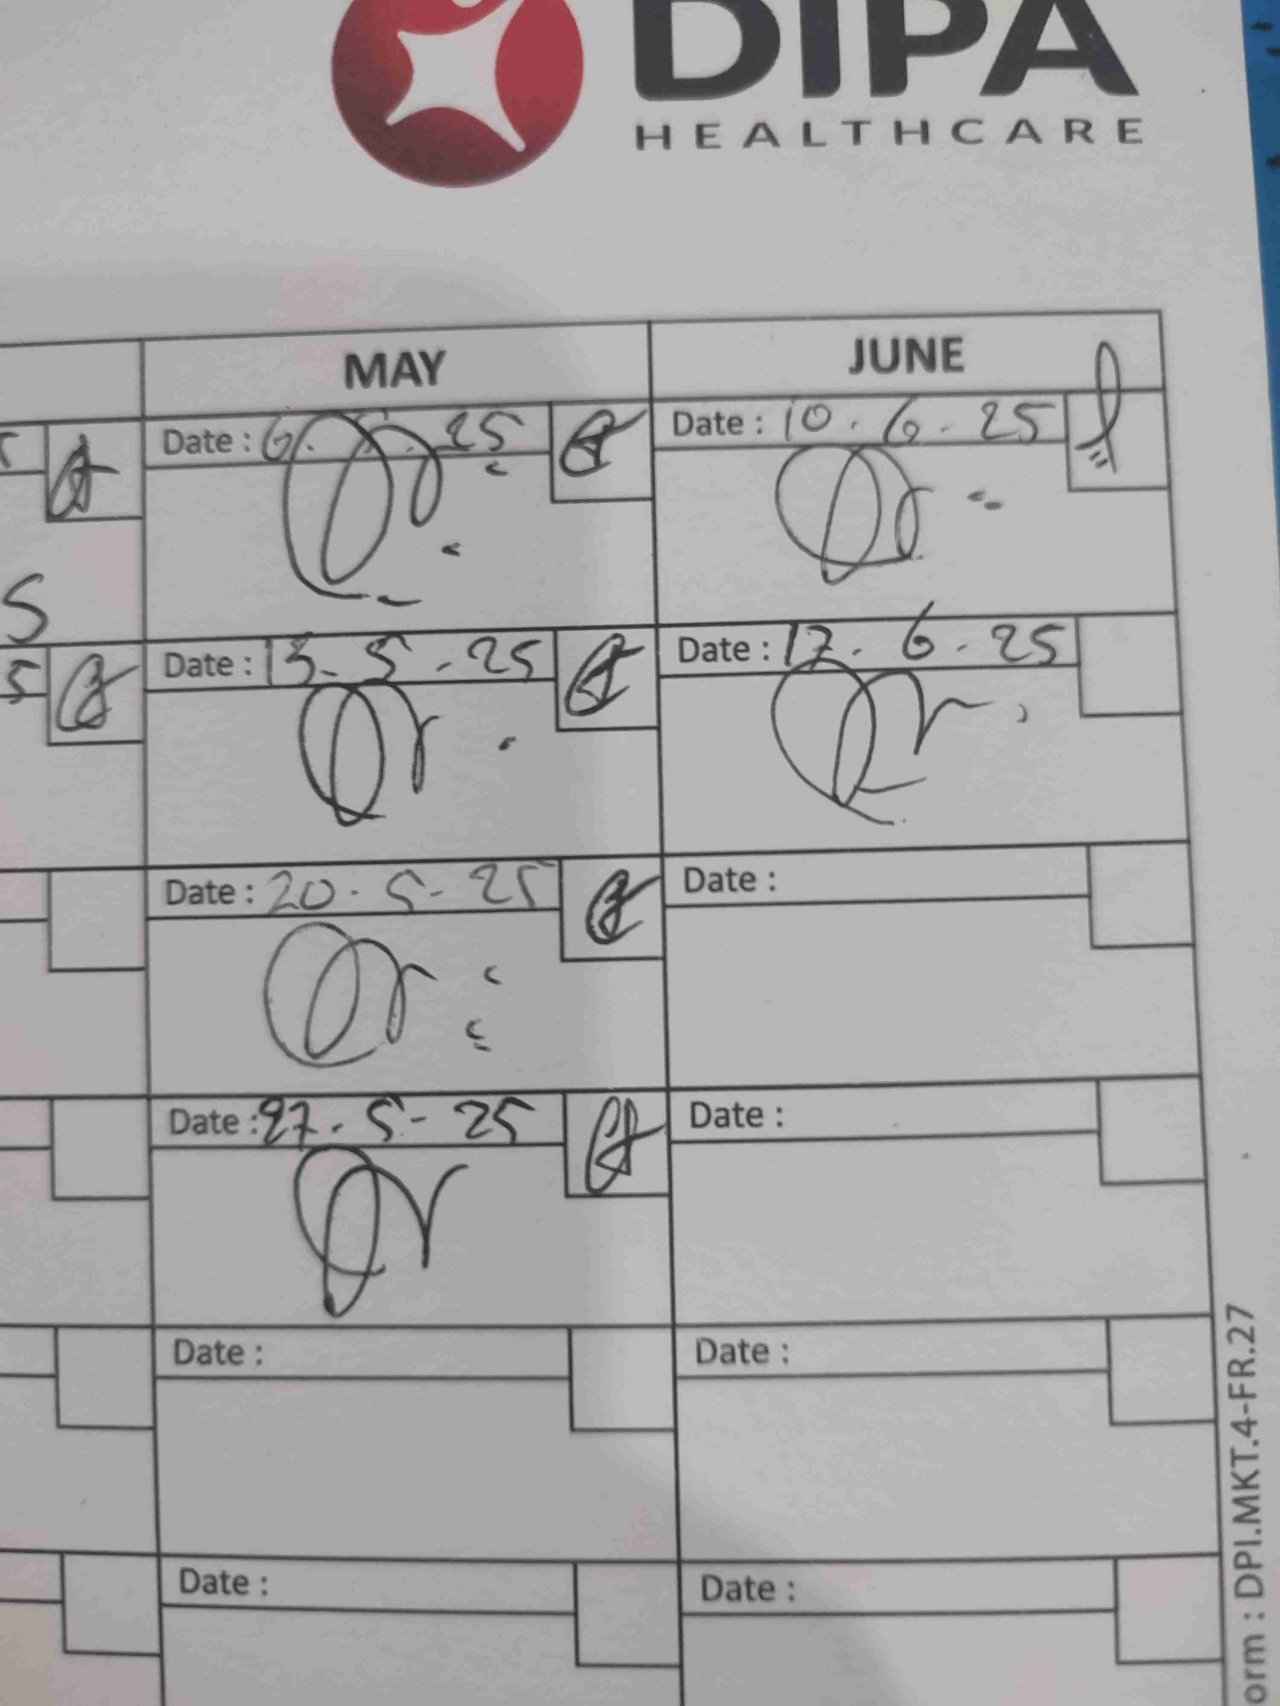 DIPA
HEALTHCARE
MAY
JUNE
Date : 6. 5. 25
Date : 10. 6. 25
5
Date : 13. 5. 25
Date : 17. 6. 25
5
Date : 20. 5. 25
Date :
Date : 27. 5. 25
Date :
Date :
Date :
Date :
Date :
orm : DPI.MKT.4-FR.27